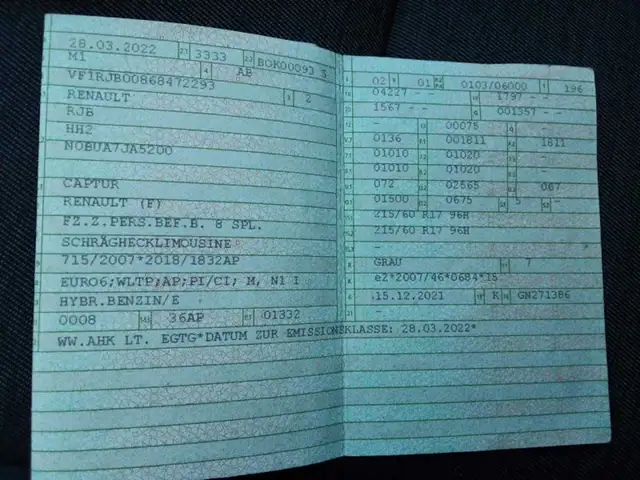 28.03.2022 2.1 3333 2.2 BOK00093 3
M1 4 AB
VF1RJB00868472293
RENAULT 3 2
RJB
HH2
N0BUA7JA5200
CAPTUR
RENAULT (F)
FZ.Z.PERS.BEF.B. 8 SPL.
SCHRÄGHECKLIMOUSINE
715/2007*2018/1832AP
EURO6;WLTP;AP;PI/CI; M, N1 I
HYBR.BENZIN/E
0008 36AP 01332
WW.AHK LT. EGTG*DATUM ZUR EMISSIONSKLASSE: 28.03.2022*
02 9 01 0103/06000 196
04227 - - 1797 - -
1567 - - 001357 - -
- 00075 -
0136 001811 1811
01010 01020 -
01010 01020 -
072 02565 067
01500 0675 5 -
215/60 R17 96H
215/60 R17 96H
- -
GRAU 7
e2*2007/46*0684*15
15.12.2021 K GN271386
-